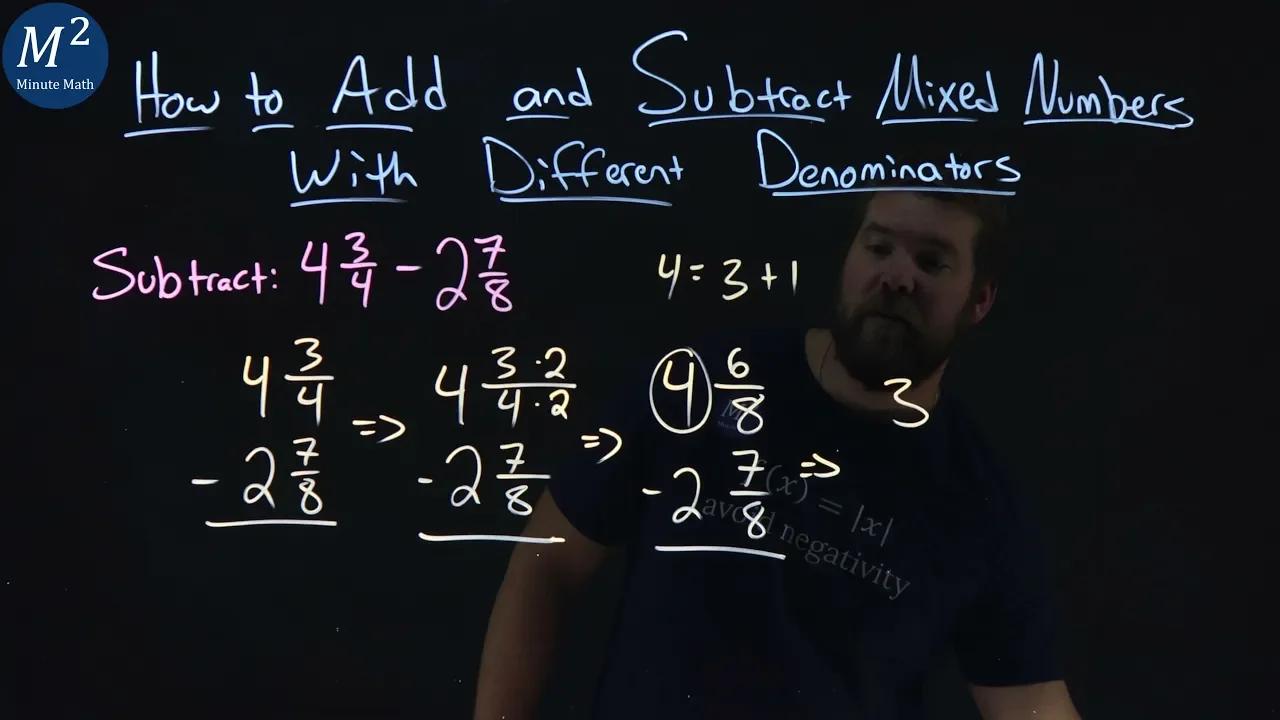 M²
Minute Math
How to Add and Subtract Mixed Numbers
With Different Denominators
Subtract: 4 3/4 - 2 7/8
4 = 3 + 1
4 3/4 => 4 3·2/4·2 => 4 6/8 => 3
- 2 7/8 - 2 7/8 - 2 7/8
f(x) = |x|
avoid negativity